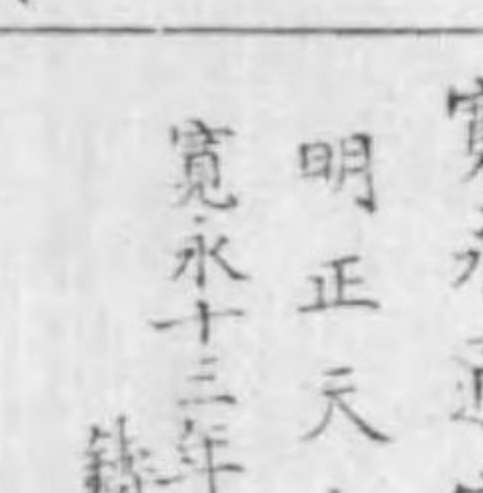 寛永通
明正天
寛永十三年
鋳